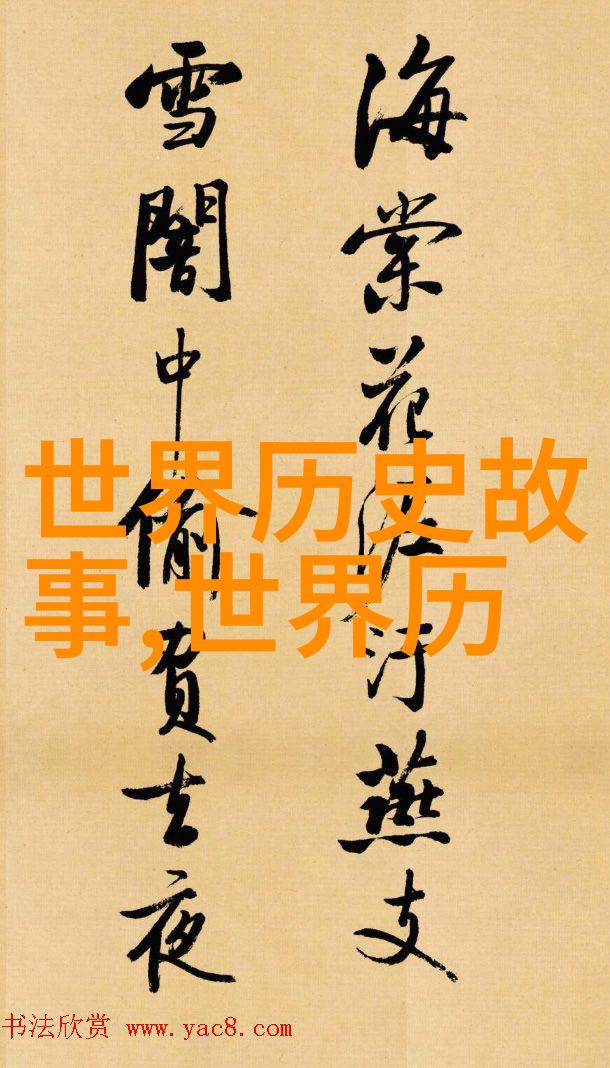 海棠花泥汙燕支
雪闇中偷負去夜
世界历史故
事,世界历
书法欣赏 www.yac8.com